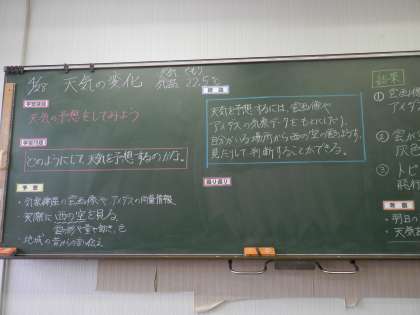 4/28 天気の変化
天気 くもり
気温 22.5℃
学習課題
天気の予想をしてみよう
学習問題
どのようにして天気を予想するのかな。
予想
・気象衛星の雲画像やアメダスの雨量情報
・実際に西の空を見る。
雲の形や量や動き、色
・地域の昔からの言い伝え
結論
天気を予想するには、雲画像や
アメダスの気象データをもとにしたり、
自分がいる場所から西の空の様子を
見たりして判断することができる。
振り返り
結果
① 雲画像
アメダ
② 雲が
灰色
③ トビ
飛行
考察
・明日の
・天気